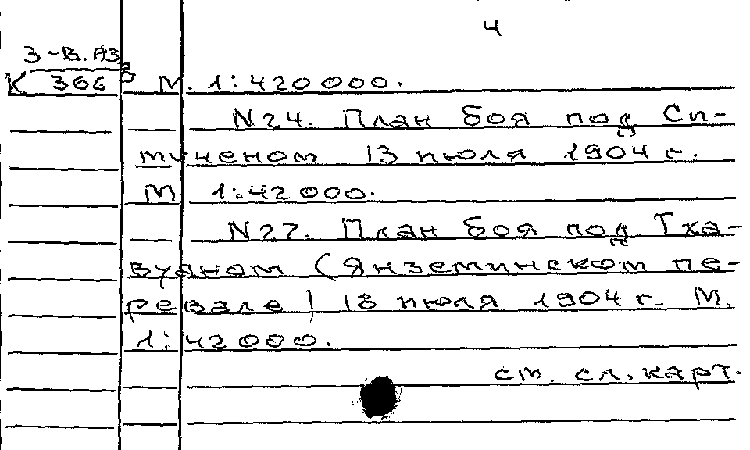 4
3-В.АЗ
К 366 М. 1:420000.
N24. План боя под Си-
мученом 13 июля 1904 г.
М 1:42000.
N27. План боя под Тха-
вуаном (Янземинском пе-
ревале) 18 июля 1904 г. М.
1:42000.
см. сл. карт.